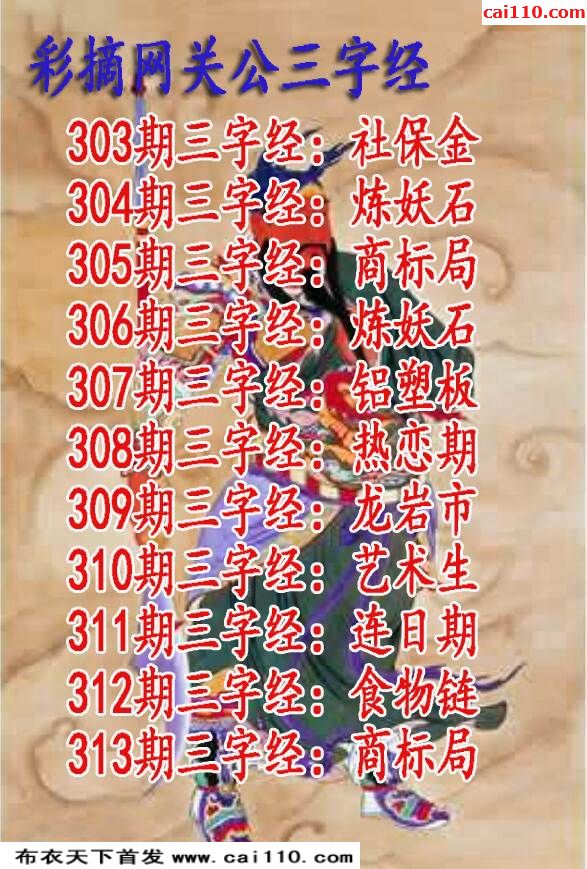 cai110.com
彩摘网关公三字经
303期三字经：社保金
304期三字经：炼妖石
305期三字经：商标局
306期三字经：炼妖石
307期三字经：铝塑板
308期三字经：热恋期
309期三字经：龙岩市
310期三字经：艺术生
311期三字经：连日期
312期三字经：食物链
313期三字经：商标局
布衣天下首发 www.cai110.com